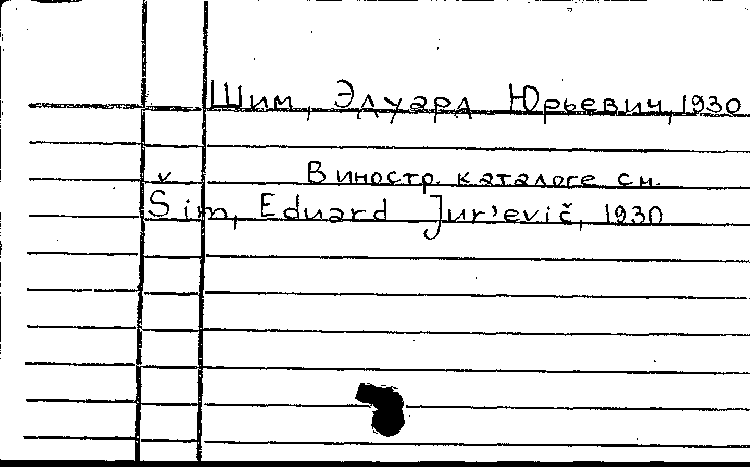 Шим, Эдуард Юрьевич, 1930
В иностр. каталоге см.
Šim, Eduard Jur'evič, 1930